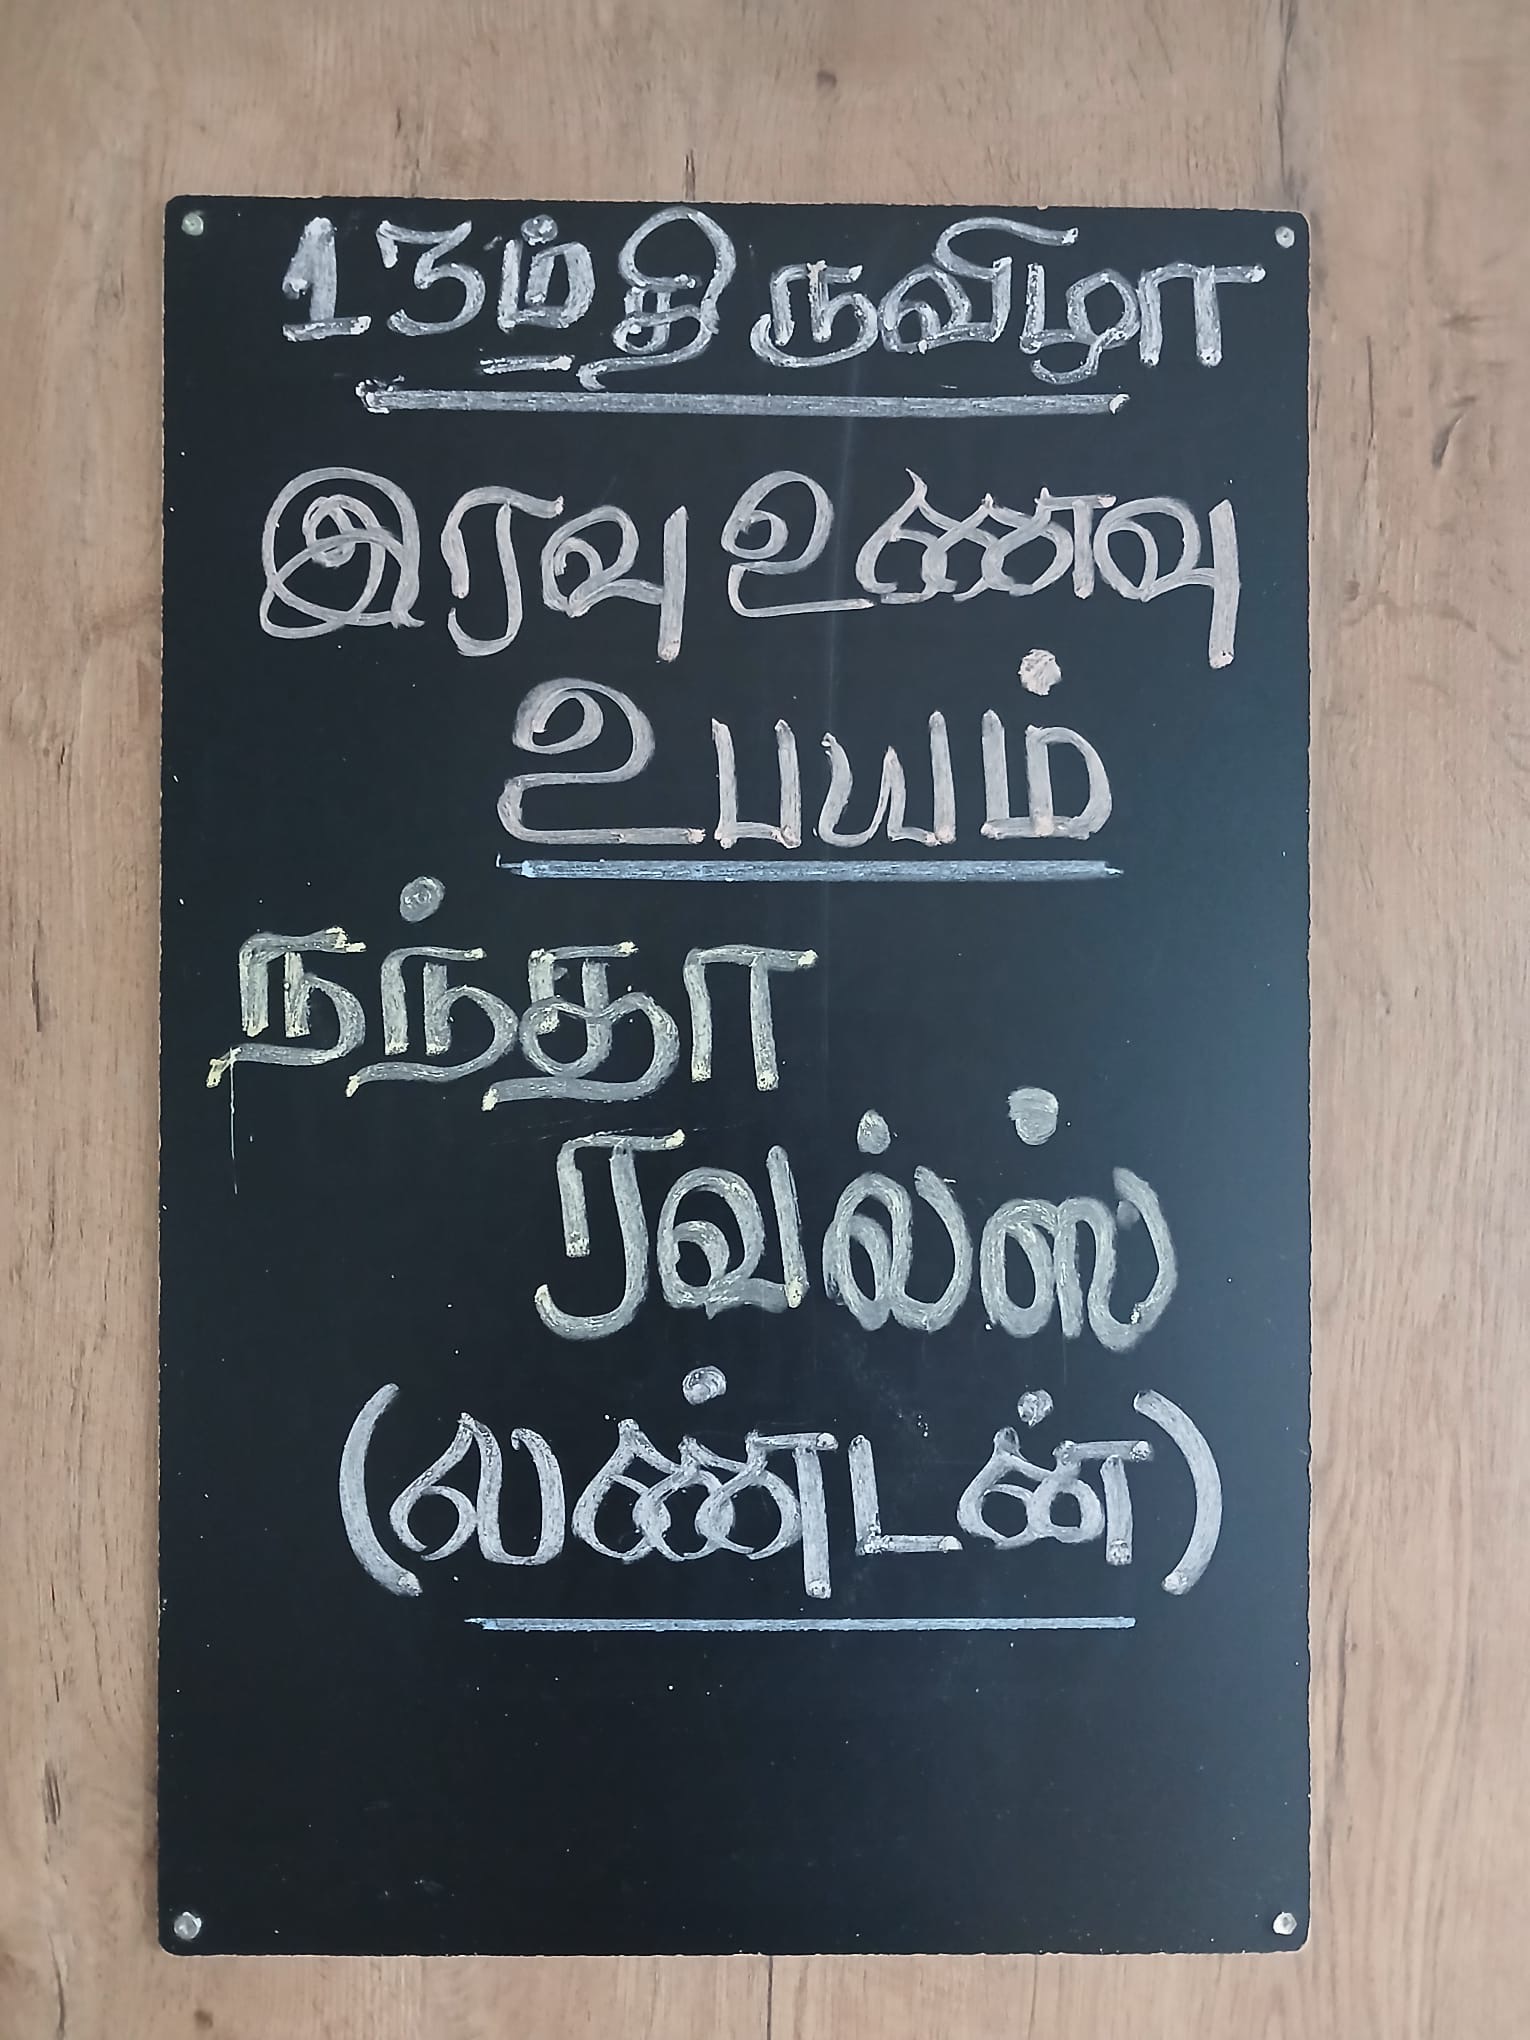 13ம் திருவிழா
இரவு உணவு
உபயம்
நந்தா
ரவல்ஸ்
(லண்டன்)